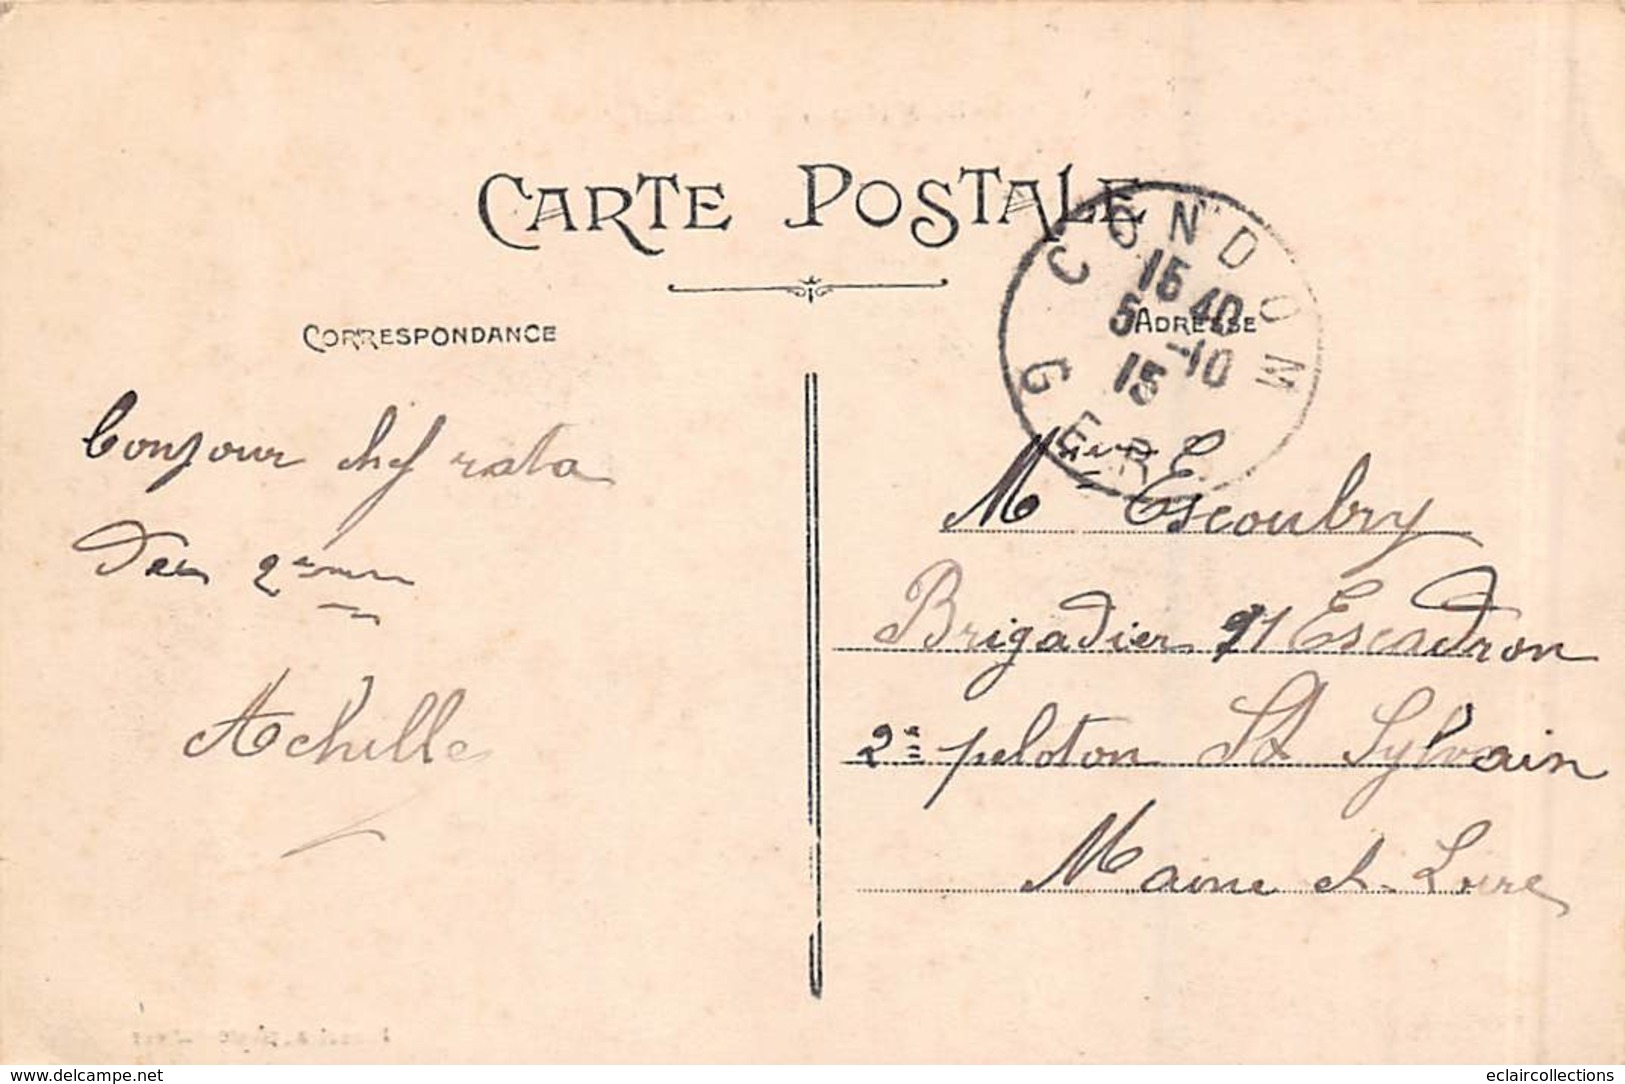 CARTE POSTALE
CORRESPONDANCE
ADRESSE
CONDOM
15 40
5 -10
15
GERS
Bonjour chef rata
Des 2ème
Achille
Mr Escoubry
Brigadier 21 Escadron
2e peloton St Sylvain
Maine et Loire
delcampe.net
eclaircollections